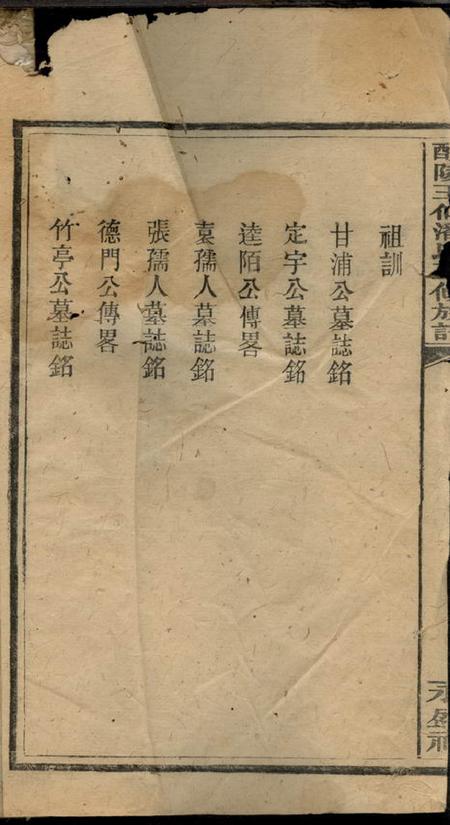 祖訓
甘浦公墓誌銘
定宇公墓誌銘
逵陌公傳畧
袁孺人墓誌銘
張孺人墓誌銘
德門公傳畧
竹亭公墓誌銘